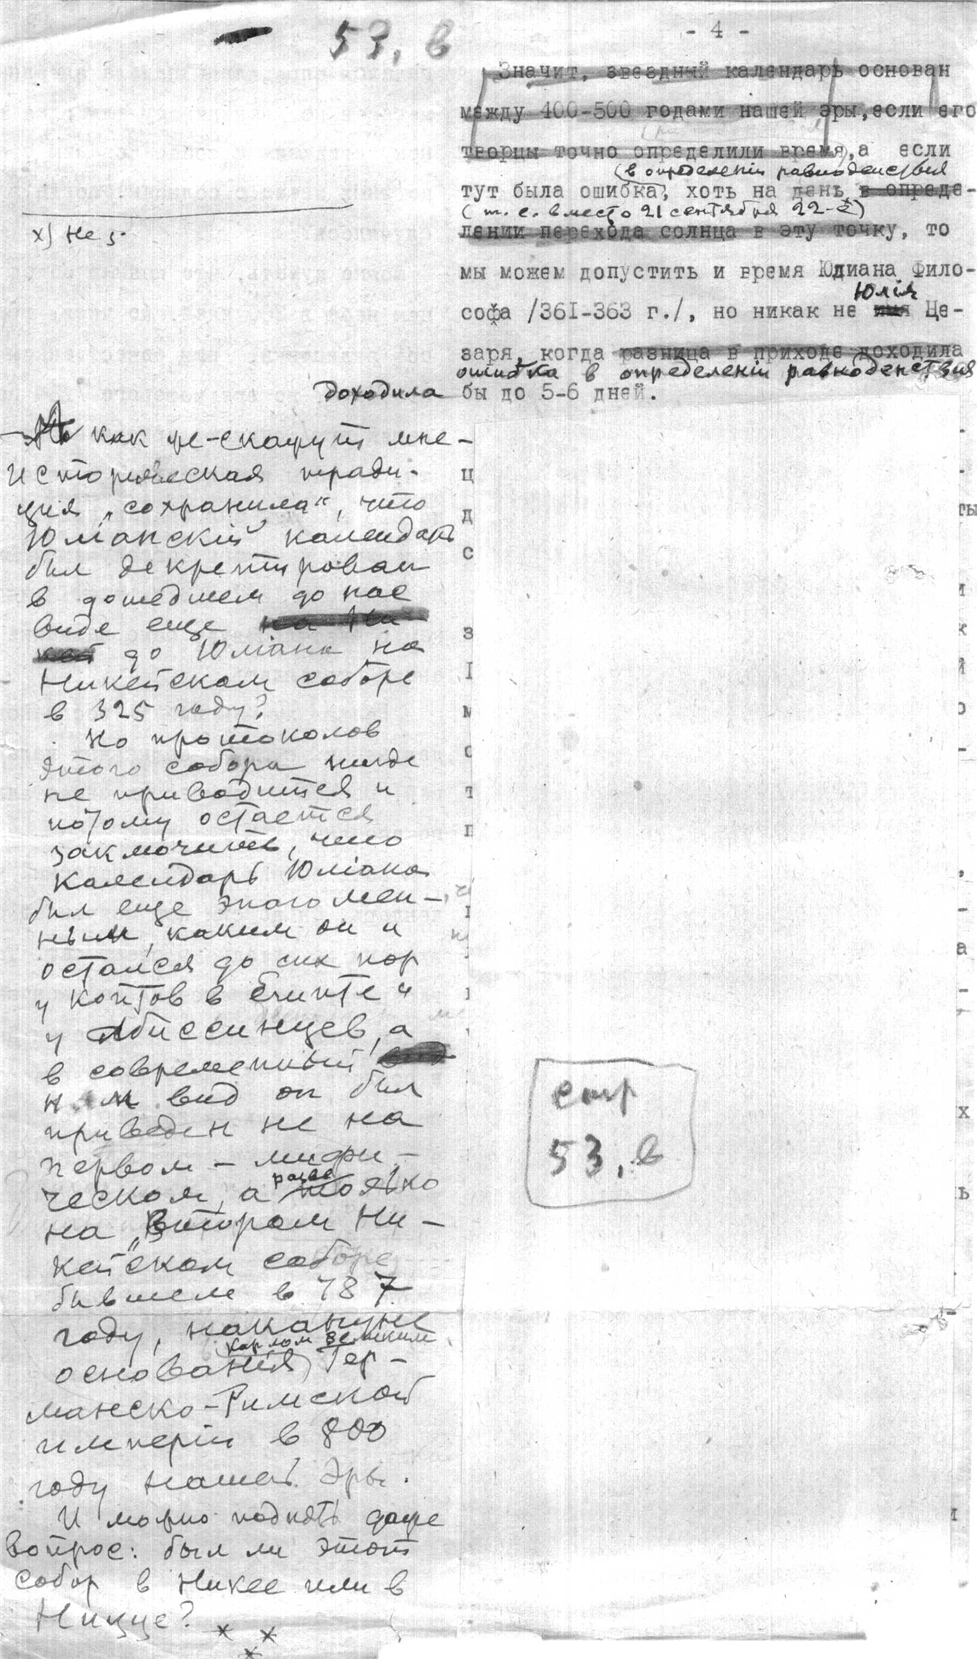 53, в
- 4 -
Значит, звездный календарь основан
между 400-500 годами нашей эры, если его
творцы точно определили время, а если
(в определенiи равноденствия
тут была ошибка, хоть на день в опреде-
(т. е. вместо 21 сентября 22-е)
лении перехода солнца в эту точку, то
мы можем допустить и время Юдиана Фило-
Юлія
софа /361-363 г./, но никак не Це-
заря, когда разница в приходе доходила
ошибка в определенiи равноденствия
доходила бы до 5-6 дней.
х) Не
как же-скажут мне-
Историческая тради-
ция „сохранила“, что
Юлiанскiй календарь
был декретирован
в дошедшем до нас
виде еще
до Юлiана на
Никейском соборе
в 325 году?
Но протоколов
этого собора нигде
не приводится и
потому остается
заключить, что
календарь Юлiана
был еще эпагомен-
ным, каким он и
остался до сих пор
у коптов в Египте и
у Абиссинцев, а
в современный
нам вид он был
приведен не на
первом - мифи-
разве
ческом, а только
на „Втором Ни-
кейском соборе
бывшем в 787
году, накануне
(Карлом Великим
основанiя) Гер-
манско-Римской
имперiи в 800
году нашей эры.
И можно поднять даже
вопрос: был ли этот
собор в Никее или в
Ницце?
* * *
стр
53, в
ц
д
с
з
ты